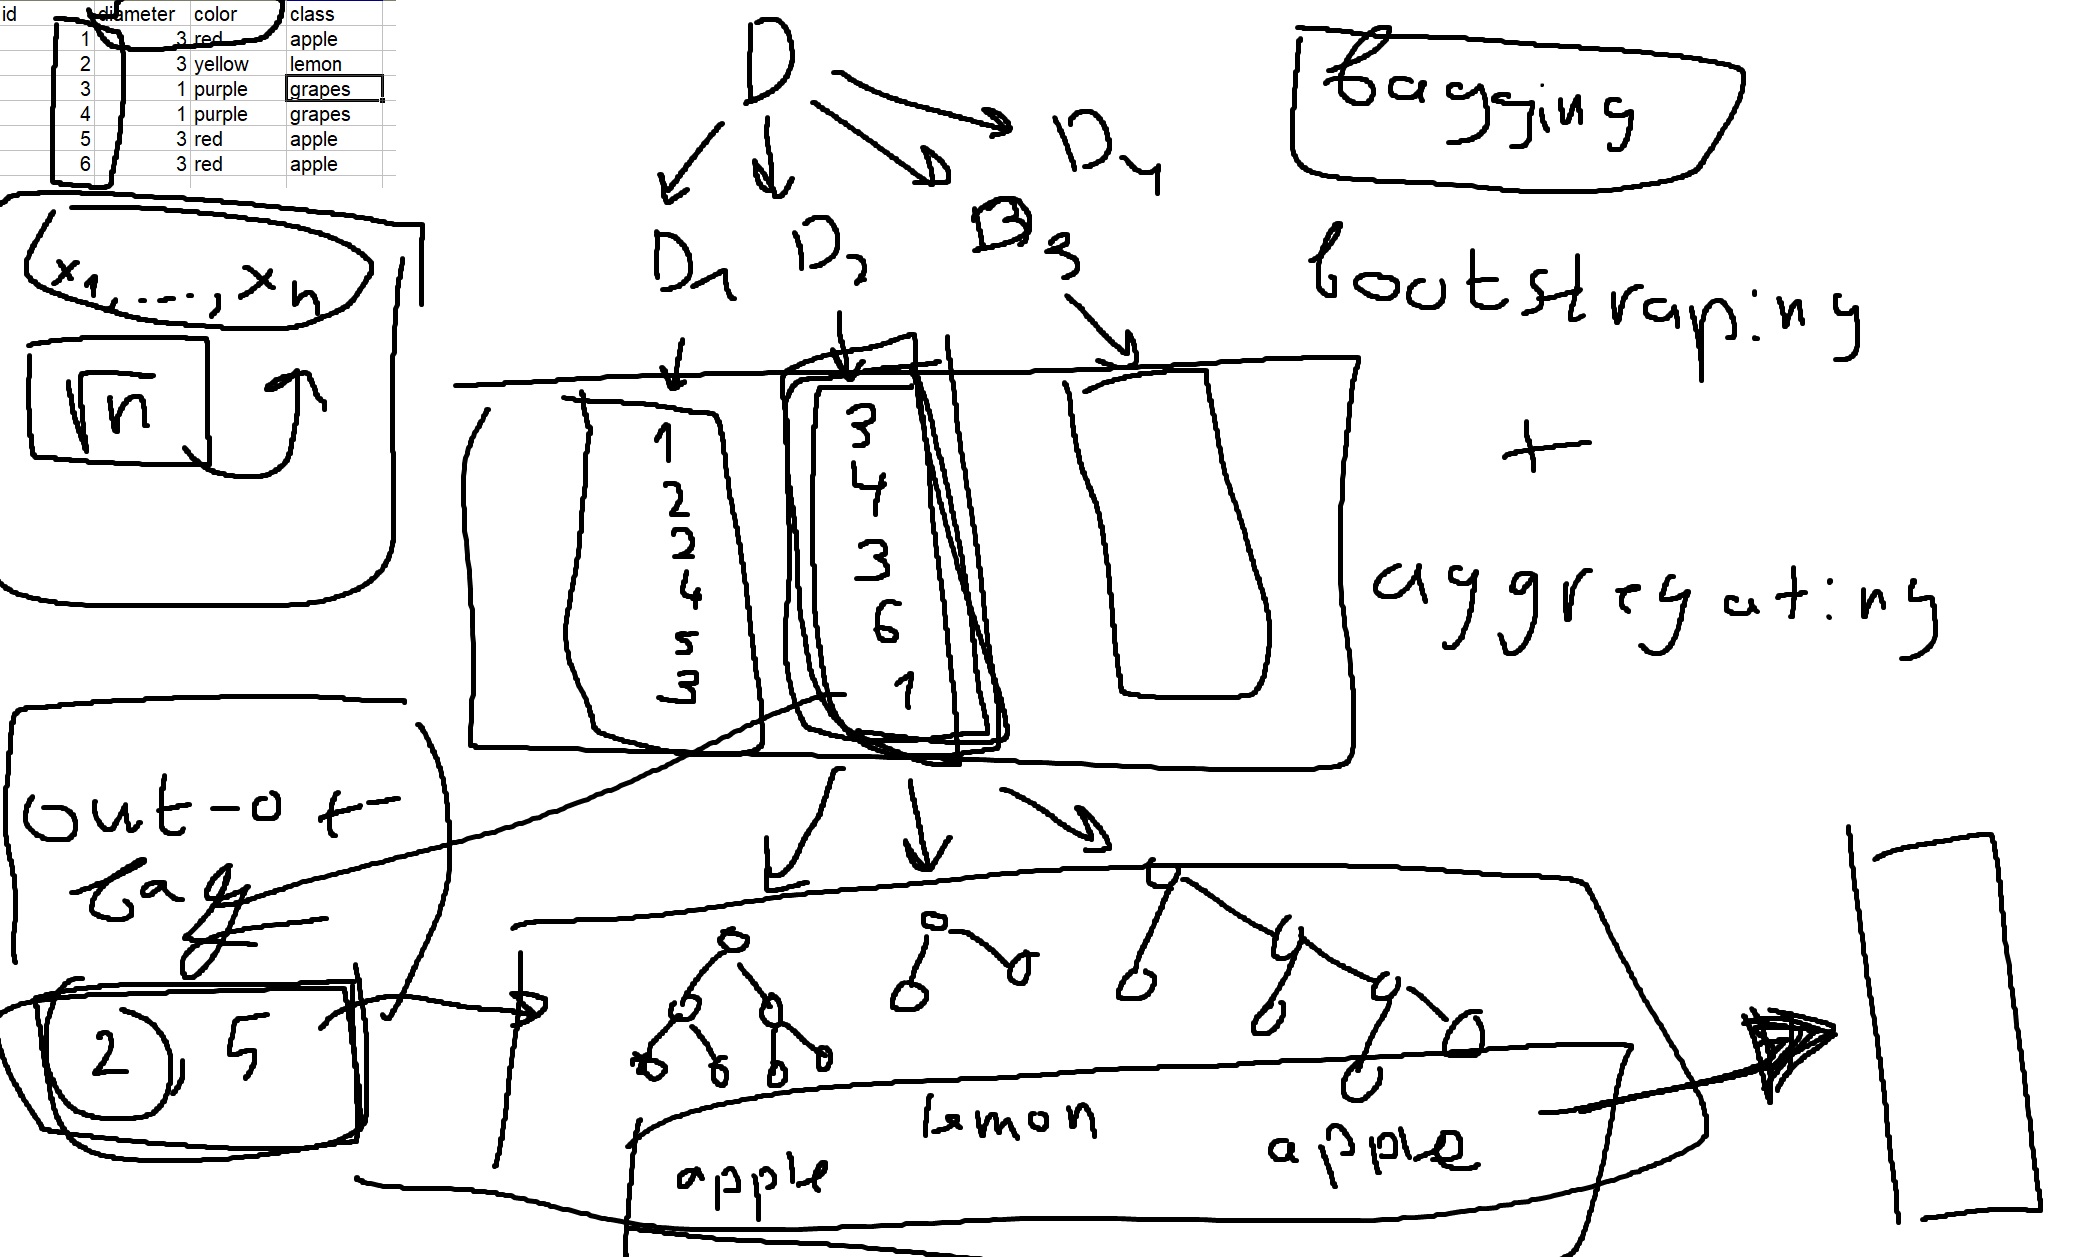 id diameter color class
1 3 red apple
2 3 yellow lemon
3 1 purple grapes
4 1 purple grapes
5 3 red apple
6 3 red apple
D
D1 D2 D3 D4
bagging
bootstraping
+
aggregating
x1, ...., xn
√n
1
2
2
4
5
3
4
3
6
1
out-of-
bag
2, 5
apple lemon apple